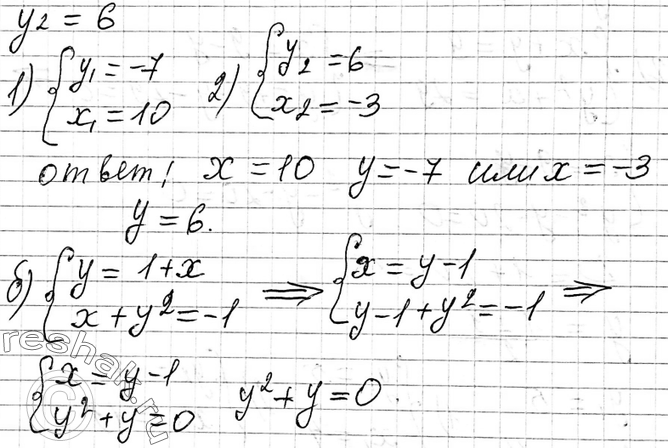 y₂ = 6
1) { y₁ = -7 2) { y₂ = 6
x₁ = 10 x₂ = -3
ответ: x = 10 y = -7 или x = -3
y = 6.
б) { y = 1+x ⟹ { x = y-1
x + y² = -1 y-1+y² = -1 ⟹
{ x = y-1 y² + y = 0
y² + y = 0
reshak.ru